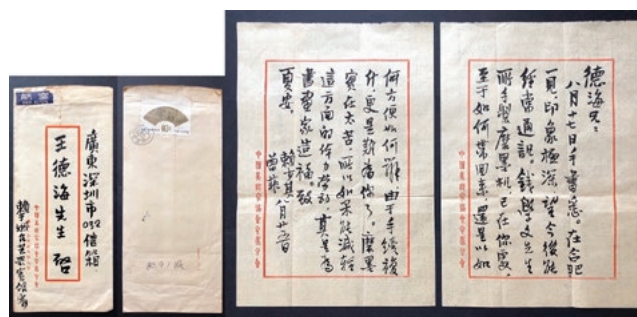 廣東深圳市032信箱
王德海先生 啓
德海兄：
八月十七日手書悉。在合肥
一見，印象極深，望今後能
經常通訊。錢學文先生
所手製磨墨机已在你處，
至于如何帶回來，還是以如
何方便如何辦。由于手續複
什，更是難為你了。磨墨
實在太苦，所以如果能減輕
這方面的体力勞動，真是為
書畫家造福。致
夏安。
賴少其 八月廿五日
曾菲